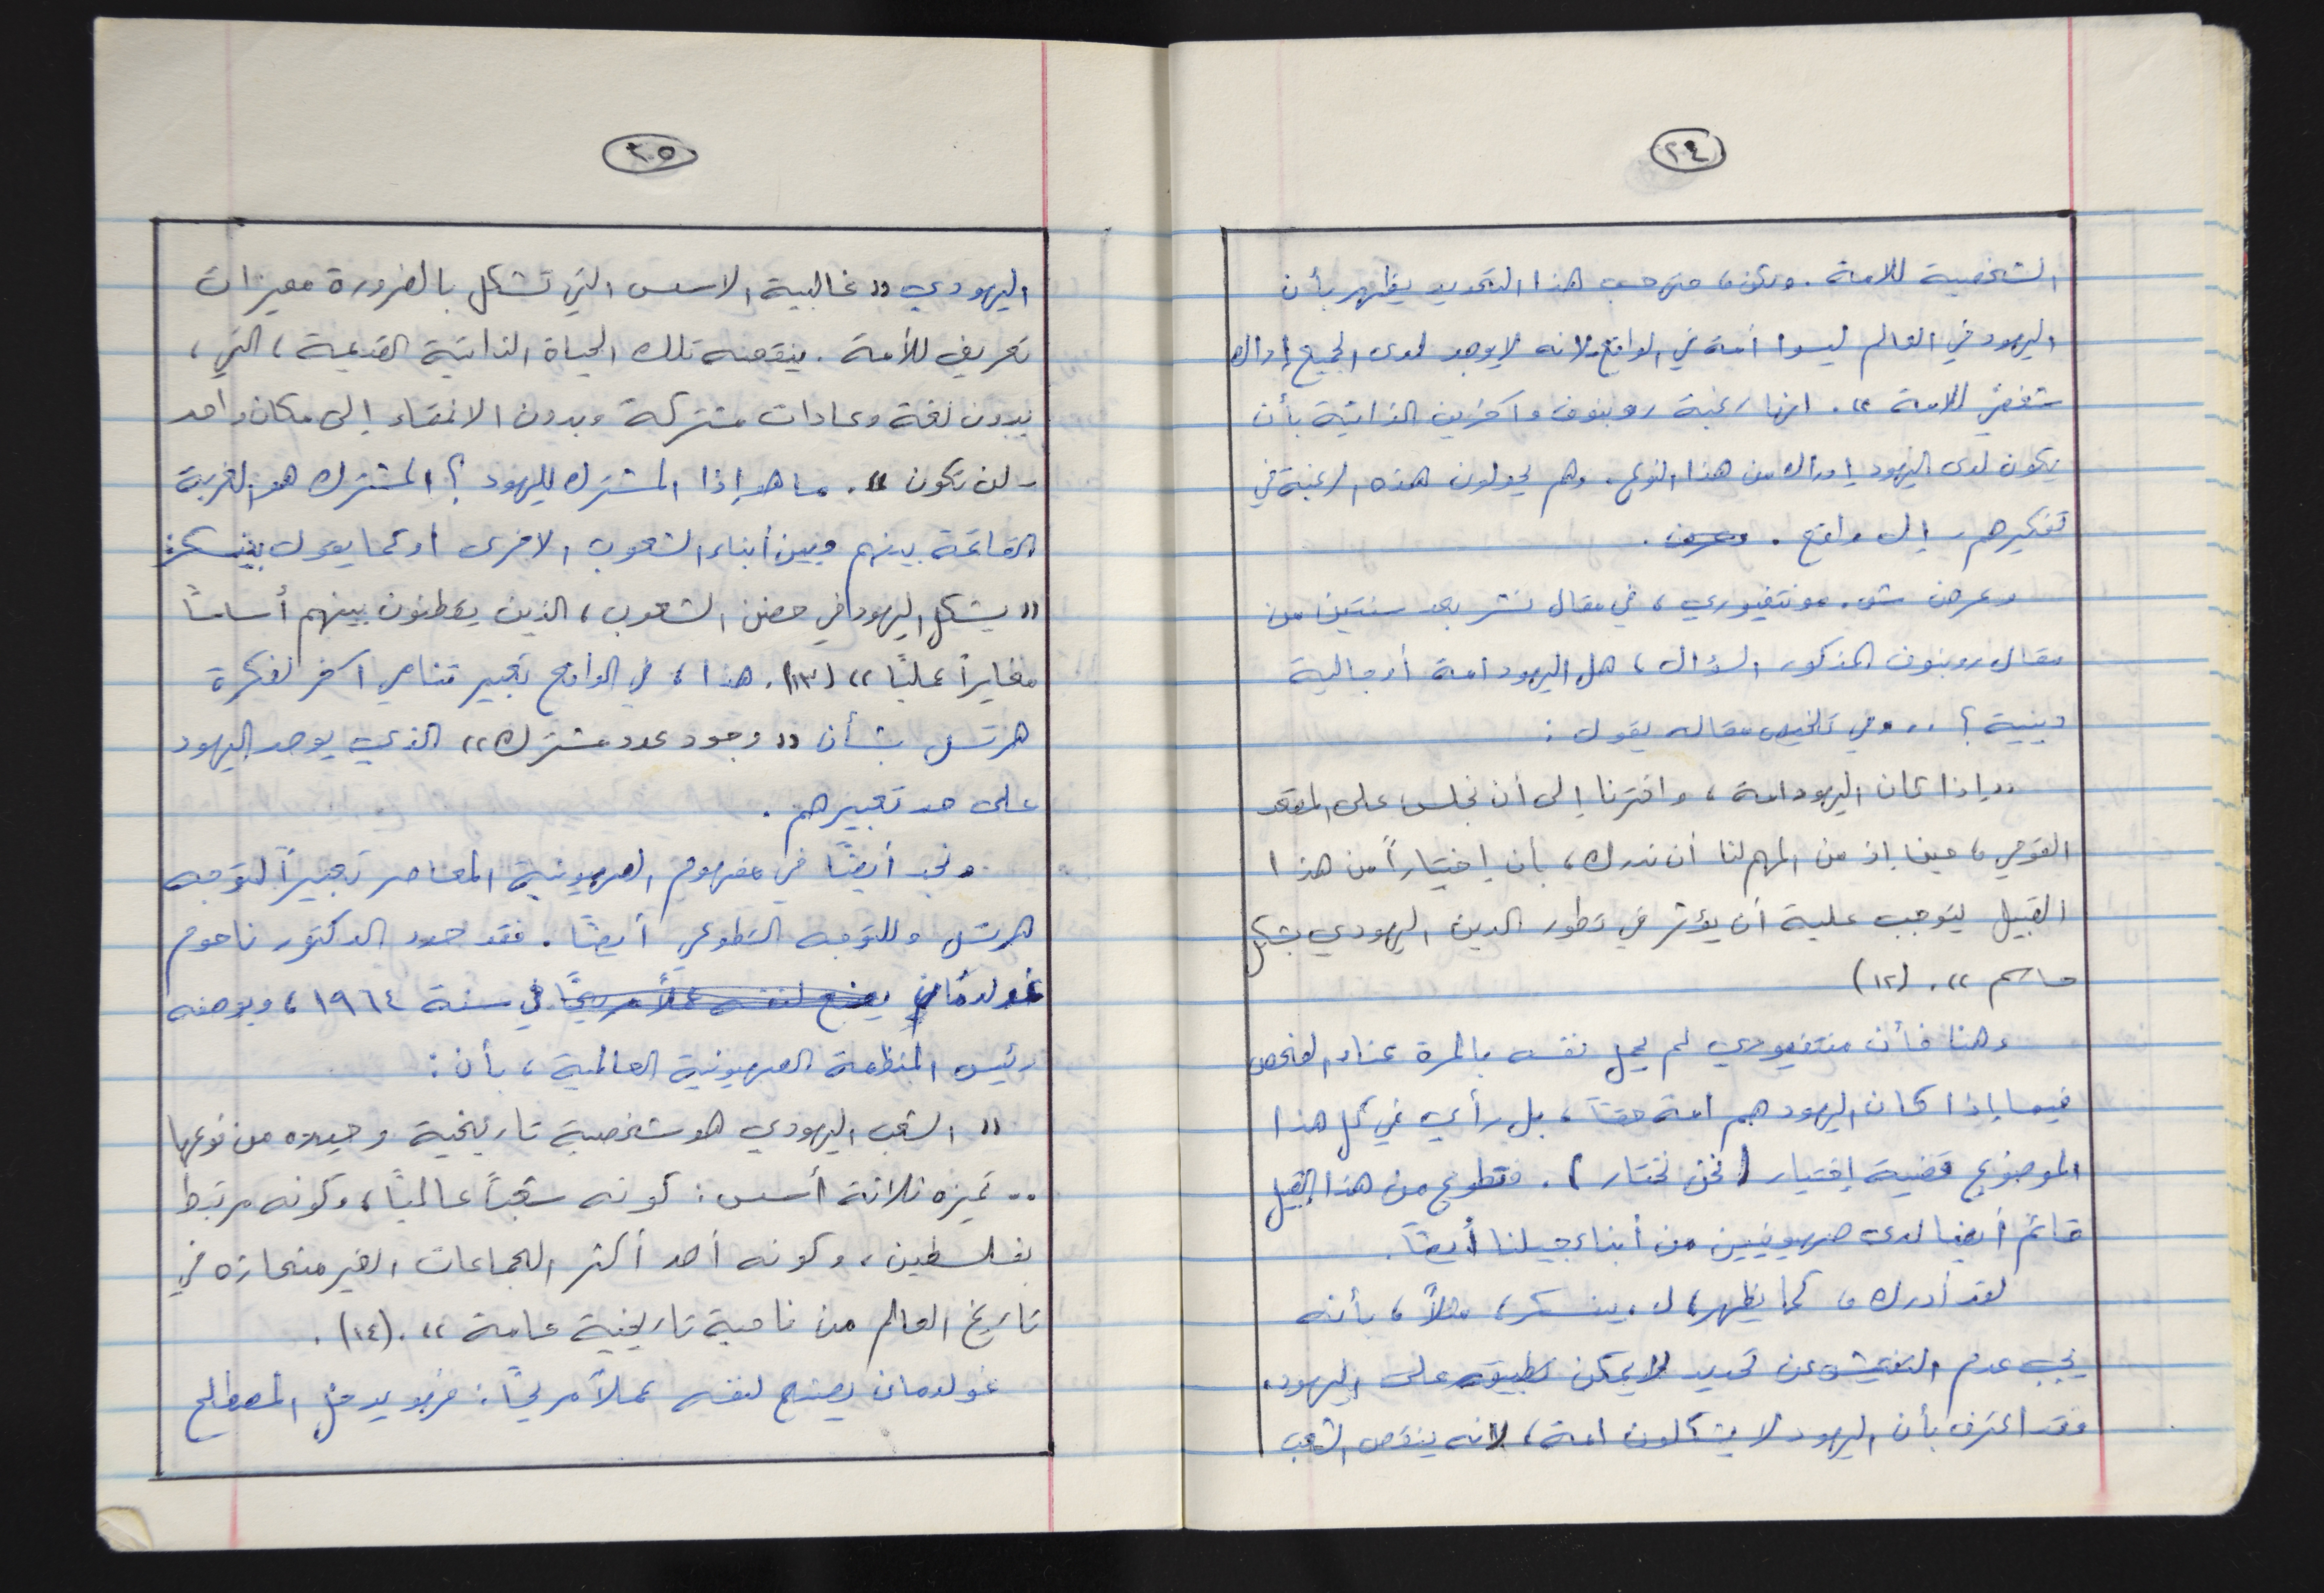 ٢٤
الشخصية للامة. ولكن، متوجب هذا التحديد يظهر بأن
اليهود في العالم ليسوا أمة في الواقع ولانه لا يوجد لدى الجميع إدراك
شخصي للامة ،،. انها رغبة روبنوف وآخرين الذاتية بأن
يكون لدى اليهود إدراك من هذا النوع. وهم يحولون هذه الرغبة في
تفكيرهم إلى واقع. وعرض.
وعرض ش. مونتفيوري، في مقال نشر بعد سنتين من
مقال روبنوف المذكور السؤال، هل اليهود امة أو جالية
دينية؟ .. وفي تلخيص مقاله يقول:
،،إذا كان اليهود امة، واخترنا إلى أن نجلس على المقعد
القومي، حينها إذ من المهم لنا أن ندرك، بان إختياراً من هذا
القبيل يتوجب علية أن يؤثر في تطور الدين اليهودي بشكل
حاسم ،،. (١٢)
وهنا فأن منتفيوري لم يحمل نفسه بالمرة عناء الفحص
فيما إذا كان اليهود هم امة حقاً، بل رأى في كل هذا
الموضوع قضية إختيار (نحن نختار). فتطوع من هذا القبيل
قائم أيضا لدى صهيونيين من أبناء جيلنا أيضاً.
لقد أدرك، كما يظهر، ل. بينسكر، مثلاً، بأنه
يجب عدم التفتيش عن تحديد لا يمكن تطبيقه على اليهود.
فقد اعترف بأن اليهود لا يشكلون امة، لانه ينقص الشعب
٢٥
اليهودي ,, غالبية الاسس التي تشكل بالضرورة مميزات
تعريف للأمة. ينقصه تلك الحياة الذاتية القديمة، التي،
بدون لغة وعادات مشتركة وبدون الانتماء إلى مكان واحد
- لن تكون ،،. ما هو إذا المشترك لليهود؟ المشترك هو الغربة
القائمة بينهم وبين أبناء الشعوب الاخرى أو كما يقول بينسكر:
,, يشكل اليهود في حضن الشعوب، الذين يقطنون بينهم أساساً
مغايراً عملياً ،، (١٣). هذا، في الواقع تعبير متناهي آخر لفكرة
هرتسل بشأن ,, وجود عدد مشترك ،، الذي يوحد اليهود
على حد تعبيرهم.
ونجد أيضاً في مفهوم الصهيونية المعاصر تعبيراً لتوجه
هرتسل وللتوجه التطوعي أيضاً. فقد حدد الدكتور ناحوم
غولدمان يصنع لنفسه عملاً مريحاً في سنة ١٩٦٤، وبوصفه
رئيس المنظمة الصهيونية العالمية، بأن:
,, الشعب اليهودي هو شخصية تاريخية وحيده من نوعها
.. تميزه ثلاثة أسس: كونه شعباً عالمياً، وكونه مرتبط
بفلسطين، وكونه أحد أكثر الجماعات الغير منحازه في
تاريخ العالم من ناحية تاريخية عامة ،،. (١٤).
غولدمان يصنع لنفسه عملاً مريحاً: فهو يدخل المصطلح